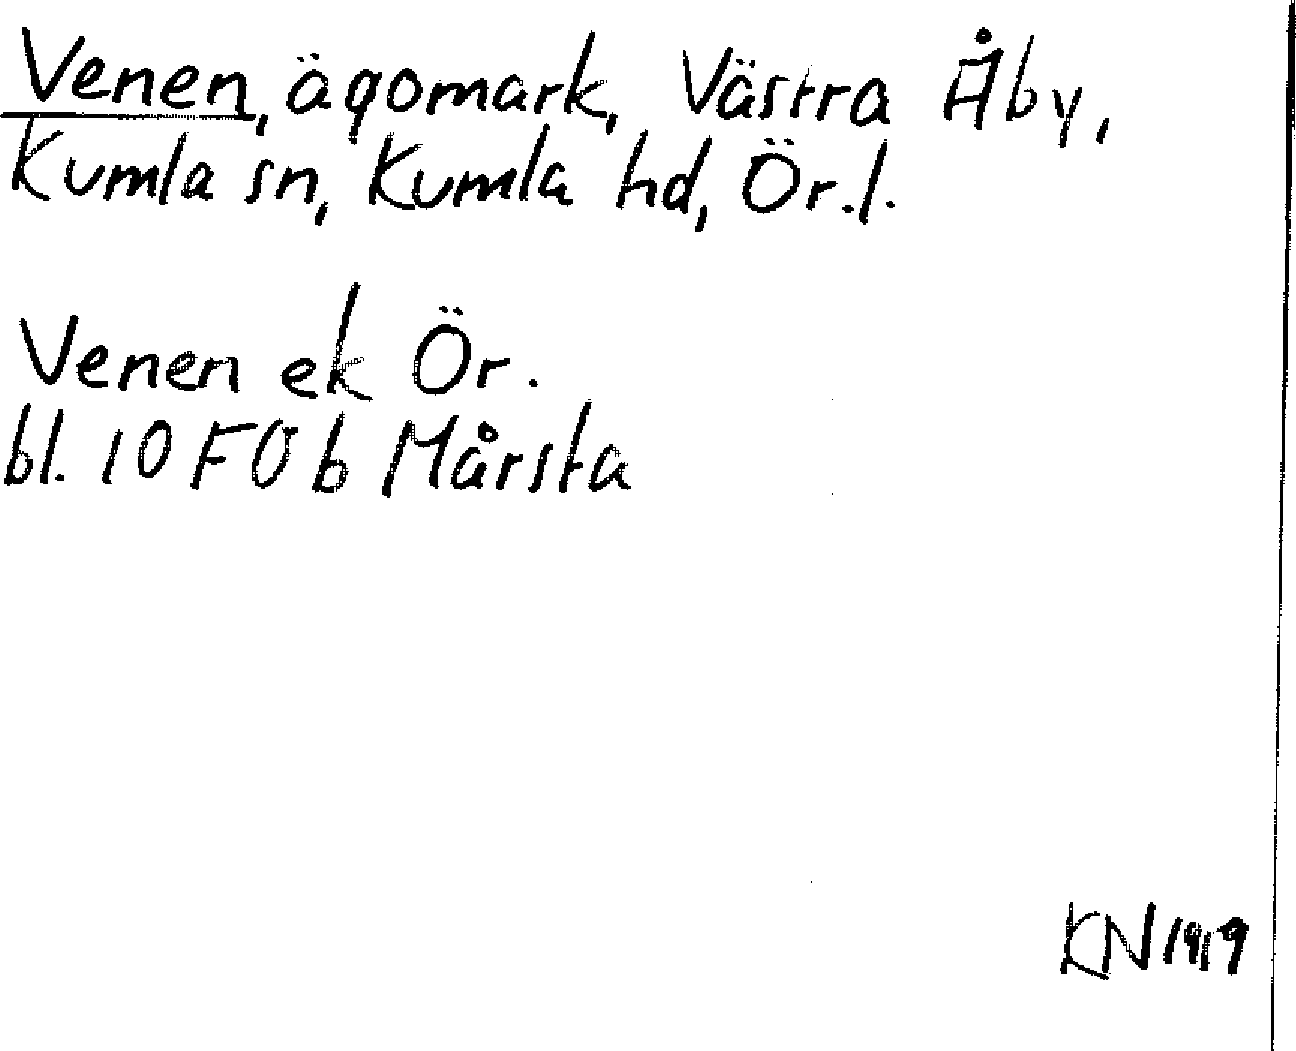 Venen, ägomark, Västra Åby,
Kumla sn, Kumla hd, Ör.l.
Venen ek Ör.
bl. 10 F 0 b Mårsta
KN 1919